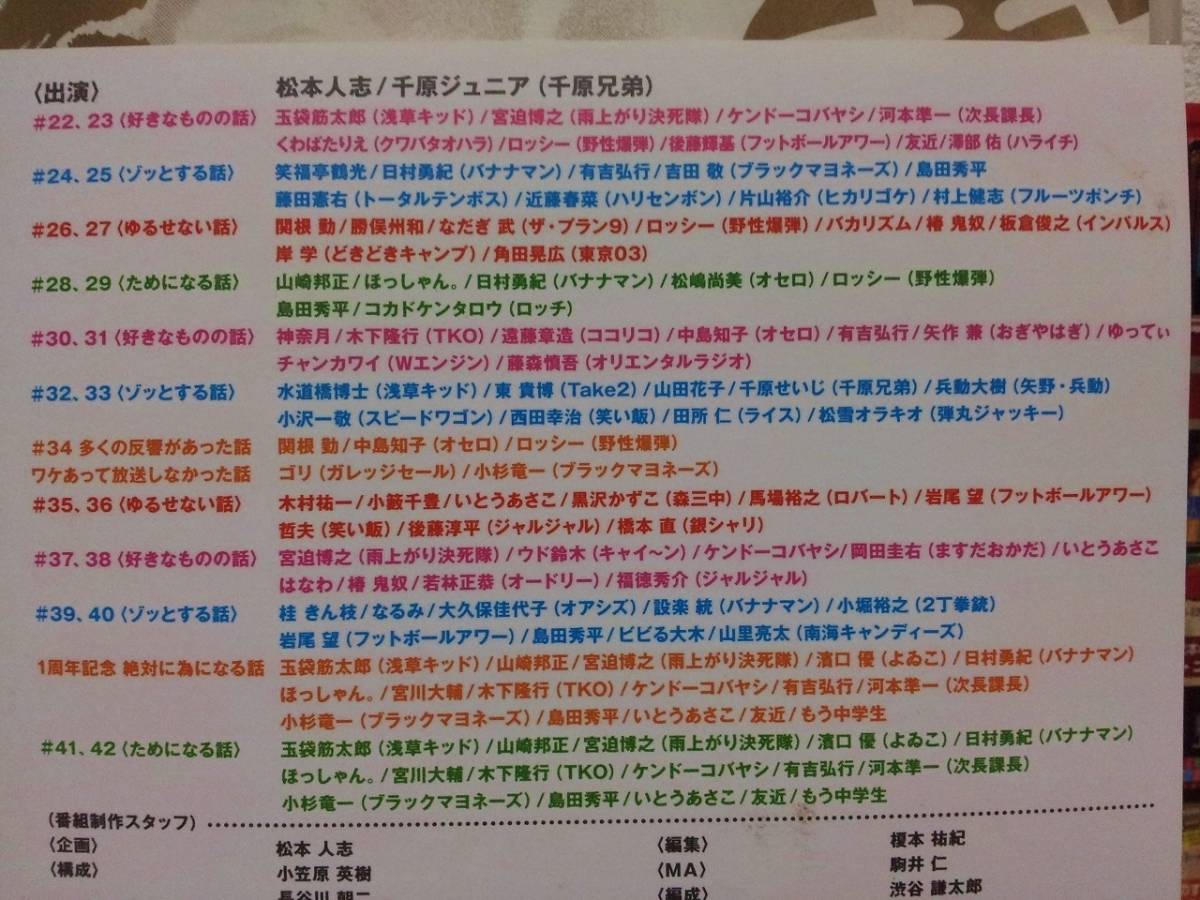 〈出演〉 松本人志/千原ジュニア(千原兄弟)
#22、23〈好きなものの話〉 玉袋筋太郎(浅草キッド)/宮迫博之(雨上がり決死隊)/ケンドーコバヤシ/河本準一(次長課長)
くわばたりえ(クワバタオハラ)/ロッシー(野性爆弾)/後藤輝基(フットボールアワー)/友近/澤部 佑(ハライチ)
#24、25〈ゾッとする話〉 笑福亭鶴光/日村勇紀(バナナマン)/有吉弘行/吉田 敬(ブラックマヨネーズ)/島田秀平
藤田憲右(トータルテンボス)/近藤春菜(ハリセンボン)/片山裕介(ヒカリゴケ)/村上健志(フルーツポンチ)
#26、27〈ゆるせない話〉 関根 勤/勝俣州和/なだぎ 武(ザ・プラン9)/ロッシー(野性爆弾)/バカリズム/椿 鬼奴/板倉俊之(インパルス)
岸 学(どきどきキャンプ)/角田晃広(東京03)
#28、29〈ためになる話〉 山崎邦正/ほっしゃん。/日村勇紀(バナナマン)/松嶋尚美(オセロ)/ロッシー(野性爆弾)
島田秀平/コカドケンタロウ(ロッチ)
#30、31〈好きなものの話〉 神奈月/木下隆行(TKO)/遠藤章造(ココリコ)/中島知子(オセロ)/有吉弘行/矢作 兼(おぎやはぎ)/ゆってぃ
チャンカワイ(Wエンジン)/藤森慎吾(オリエンタルラジオ)
#32、33〈ゾッとする話〉 水道橋博士(浅草キッド)/東 貴博(Take2)/山田花子/千原せいじ(千原兄弟)/兵動大樹(矢野・兵動)
小沢一敬(スピードワゴン)/西田幸治(笑い飯)/田所 仁(ライス)/松雪オラキオ(弾丸ジャッキー)
#34 多くの反響があった話 関根 勤/中島知子(オセロ)/ロッシー(野性爆弾)
ワケあって放送しなかった話 ゴリ(ガレッジセール)/小杉竜一(ブラックマヨネーズ)
#35、36〈ゆるせない話〉 木村祐一/小籔千豊/いとうあさこ/黒沢かずこ(森三中)/馬場裕之(ロバート)/岩尾 望(フットボールアワー)
哲夫(笑い飯)/後藤淳平(ジャルジャル)/橋本 直(銀シャリ)
#37、38〈好きなものの話〉 宮迫博之(雨上がり決死隊)/ウド鈴木(キャイ〜ン)/ケンドーコバヤシ/岡田圭右(ますだおかだ)/いとうあさこ
はなわ/椿 鬼奴/若林正恭(オードリー)/福徳秀介(ジャルジャル)
#39、40〈ゾッとする話〉 桂 きん枝/なるみ/大久保佳代子(オアシズ)/設楽 統(バナナマン)/小堀裕之(2丁拳銃)
岩尾 望(フットボールアワー)/島田秀平/ビビる大木/山里亮太(南海キャンディーズ)
1周年記念 絶対に為になる話 玉袋筋太郎(浅草キッド)/山崎邦正/宮迫博之(雨上がり決死隊)/濱口 優(よゐこ)/日村勇紀(バナナマン)
ほっしゃん。/宮川大輔/木下隆行(TKO)/ケンドーコバヤシ/有吉弘行/河本準一(次長課長)
小杉竜一(ブラックマヨネーズ)/島田秀平/いとうあさこ/友近/もう中学生
#41、42〈ためになる話〉 玉袋筋太郎(浅草キッド)/山崎邦正/宮迫博之(雨上がり決死隊)/濱口 優(よゐこ)/日村勇紀(バナナマン)
ほっしゃん。/宮川大輔/木下隆行(TKO)/ケンドーコバヤシ/有吉弘行/河本準一(次長課長)
小杉竜一(ブラックマヨネーズ)/島田秀平/いとうあさこ/友近/もう中学生
(番組制作スタッフ)
〈企画〉 松本 人志 〈編集〉 榎本 祐紀
〈構成〉 小笠原 英樹 〈MA〉 駒井 仁
長谷川 朝二 〈編成〉 渋谷 謙太郎